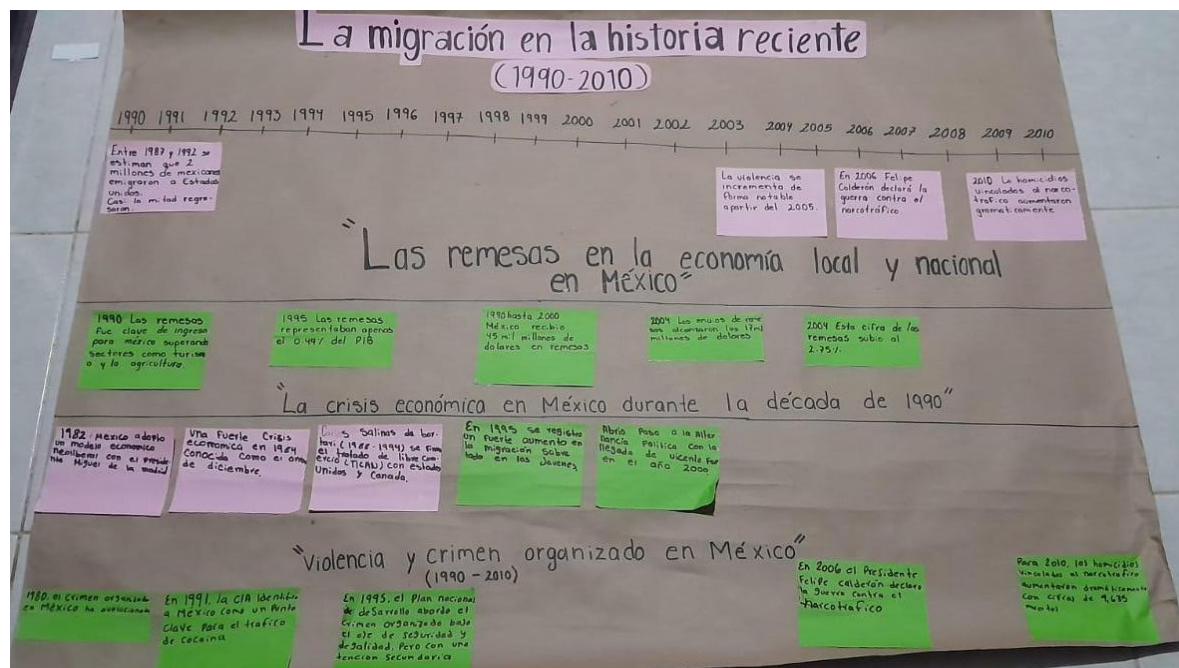 La migración en la historia reciente
(1990-2010)
1990 1991 1992 1993 1994 1995 1996 1997 1998 1999 2000 2001 2002 2003 2004 2005 2006 2007 2008 2009 2010
Entre 1987 y 1992 se
estiman que 2
millones de mexicanos
emigraron a Estados
unidos.
Casi la mitad regre-
saron.
La violencia se
incrementa de
forma notable
apartir del 2005.
En 2006 Felipe
Calderón declaró la
guerra contra el
narcotráfico
2010 Lo homicidios
vinculados al narco-
trafico aumentaron
gramaticamente
"Las remesas en la economía local y nacional
en México"
1990 Las remesas
fue clave de ingreso
para méxico superando
sectores como turism
o y la agricultura.
1995 Las remesas
representaban apenas
el 0.44% del PIB
1990 hasta 2000
México recibio
45 mil millones de
dolares en remesas
2004 Los envios de reme
sas alcanzaron los 17mil
millones de dolares
2004 Esta cifra de las
remesas subio al
2.75%
"La crisis económica en México durante la década de 1990"
1982 Mexico adopto
un modelo economico
neoliberal con el preside
nte Miguel de la madrid
una Fuerte Crisis
economica en 1994
Conocida como el error
de diciembre.
Salinas de bor-
tari (1988-1994) se firma
el tratado de libre com-
ercio (TLCAN) con estados
Unidos y Canada.
En 1995 se registro
un fuerte aumento en
la migración sobre
todo en los Jovenes.
Abrio Paso a la Alter
nancia Politica con la
llegada de vicente Fox
en el año 2000
"violencia y crimen organizado en México"
(1990-2010)
1980. el crimen organizado
en México ha evolucionado
En 1991, la CIA Identifico
a México como un Punto
Clave Para el trafico
de cocaina
En 1995, el Plan nacional
de desarrollo abordo el
Crimen organizado bajo
el eje de seguridad y
legalidad, Pero con una
atencion Secundaria
En 2006 el Presidente
Felipe calderón declaro
la guerra contra el
narcotrafico
Para 2010, los homicidios
vinculados al narcotrafico
aumentaron dramáticamente
con cifras de 9,635